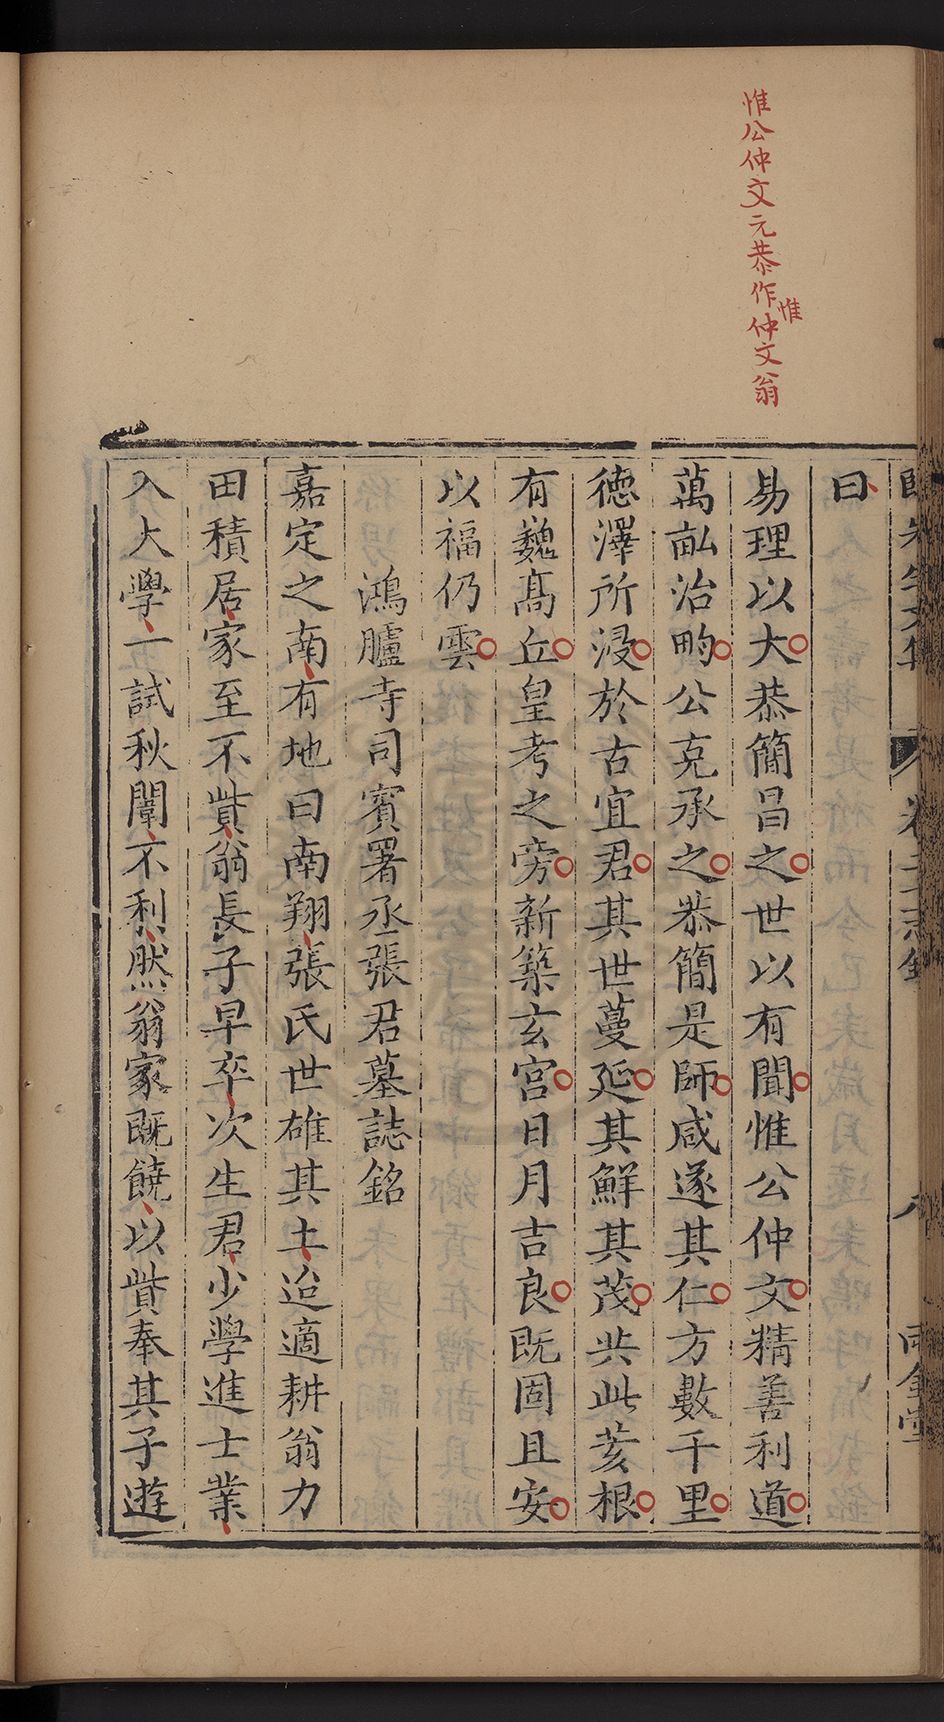 惟公仲文元恭作惟仲文翁
曰
易理以大恭簡昌之世以有聞惟公仲文精善利道
萬畆治畇公克承之恭簡是師咸遂其仁方數千里
德澤所浸於古宜君其世蔓延其鮮其茂共此荄根
有巍髙丘皇考之旁新築玄宫日月吉良既固且安
以福仍雲
鴻臚寺司賓署丞張君墓誌銘
嘉定之南有地曰南翔張氏世雄其土迨適耕翁力
田積居家至不貲翁長子早卒次生君少學進士業
入大學一試秋闈不利然翁家既饒以貲奉其子遊